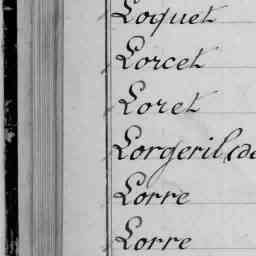 Loquet
Lorcet
Loret
Lorgeril (de
Lorre
Lorre